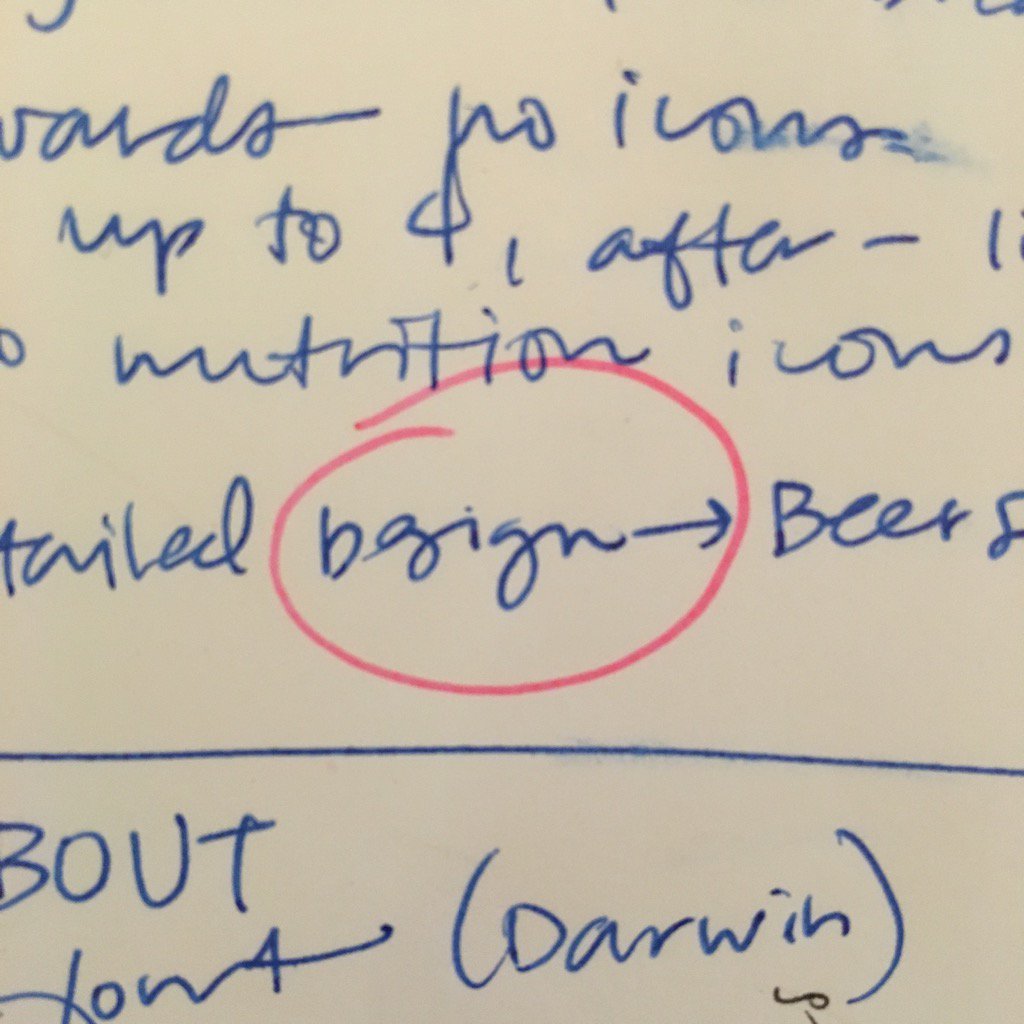 wards no icons
up to 4, after - 1
nutrition icons
tailed besign → Beers
BOUT
(Darwin)